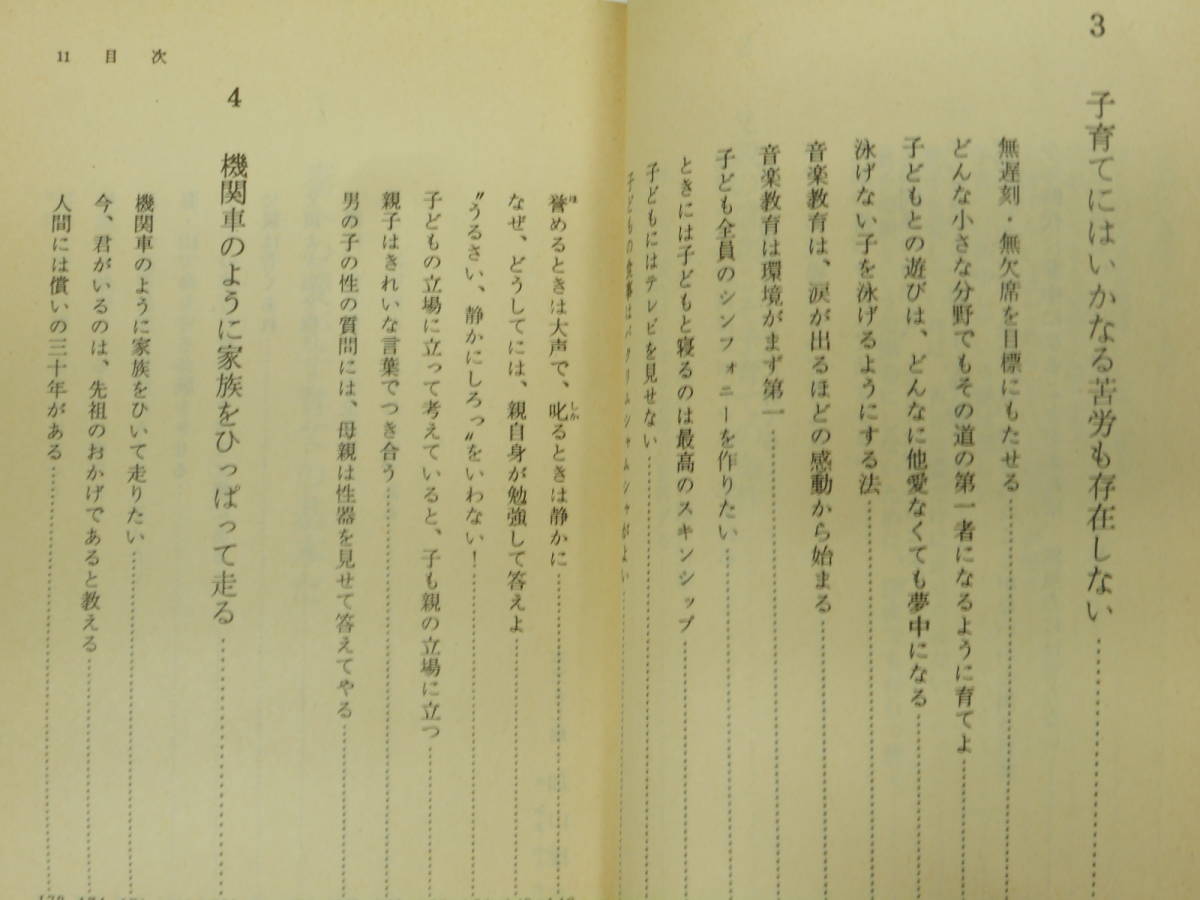 3
子育てにはいかなる苦労も存在しない
無遅刻・無欠席を目標にもたせる
どんな小さな分野でもその道の第一者になるように育てよ
子どもとの遊びは、どんなに他愛なくても夢中になる
泳げない子を泳げるようにする法
音楽教育は、涙が出るほどの感動から始まる
音楽教育は環境がまず第一
子ども全員のシンフォニーを作りたい
ときには子どもと寝るのは最高のスキンシップ
子どもにはテレビを見せない
子どもの食事は
11 目次
誉めるときは大声で、叱るときは静かに
なぜ、どうしてには、親自身が勉強して答えよ
〝うるさい、静かにしろっ〟をいわない！
子どもの立場に立って考えていると、子も親の立場に立つ
親子はきれいな言葉でつき合う
男の子の性の質問には、母親は性器を見せて答えてやる
4
機関車のように家族をひっぱって走る
機関車のように家族をひいて走りたい
今、君がいるのは、先祖のおかげであると教える
人間には償いの三十年がある